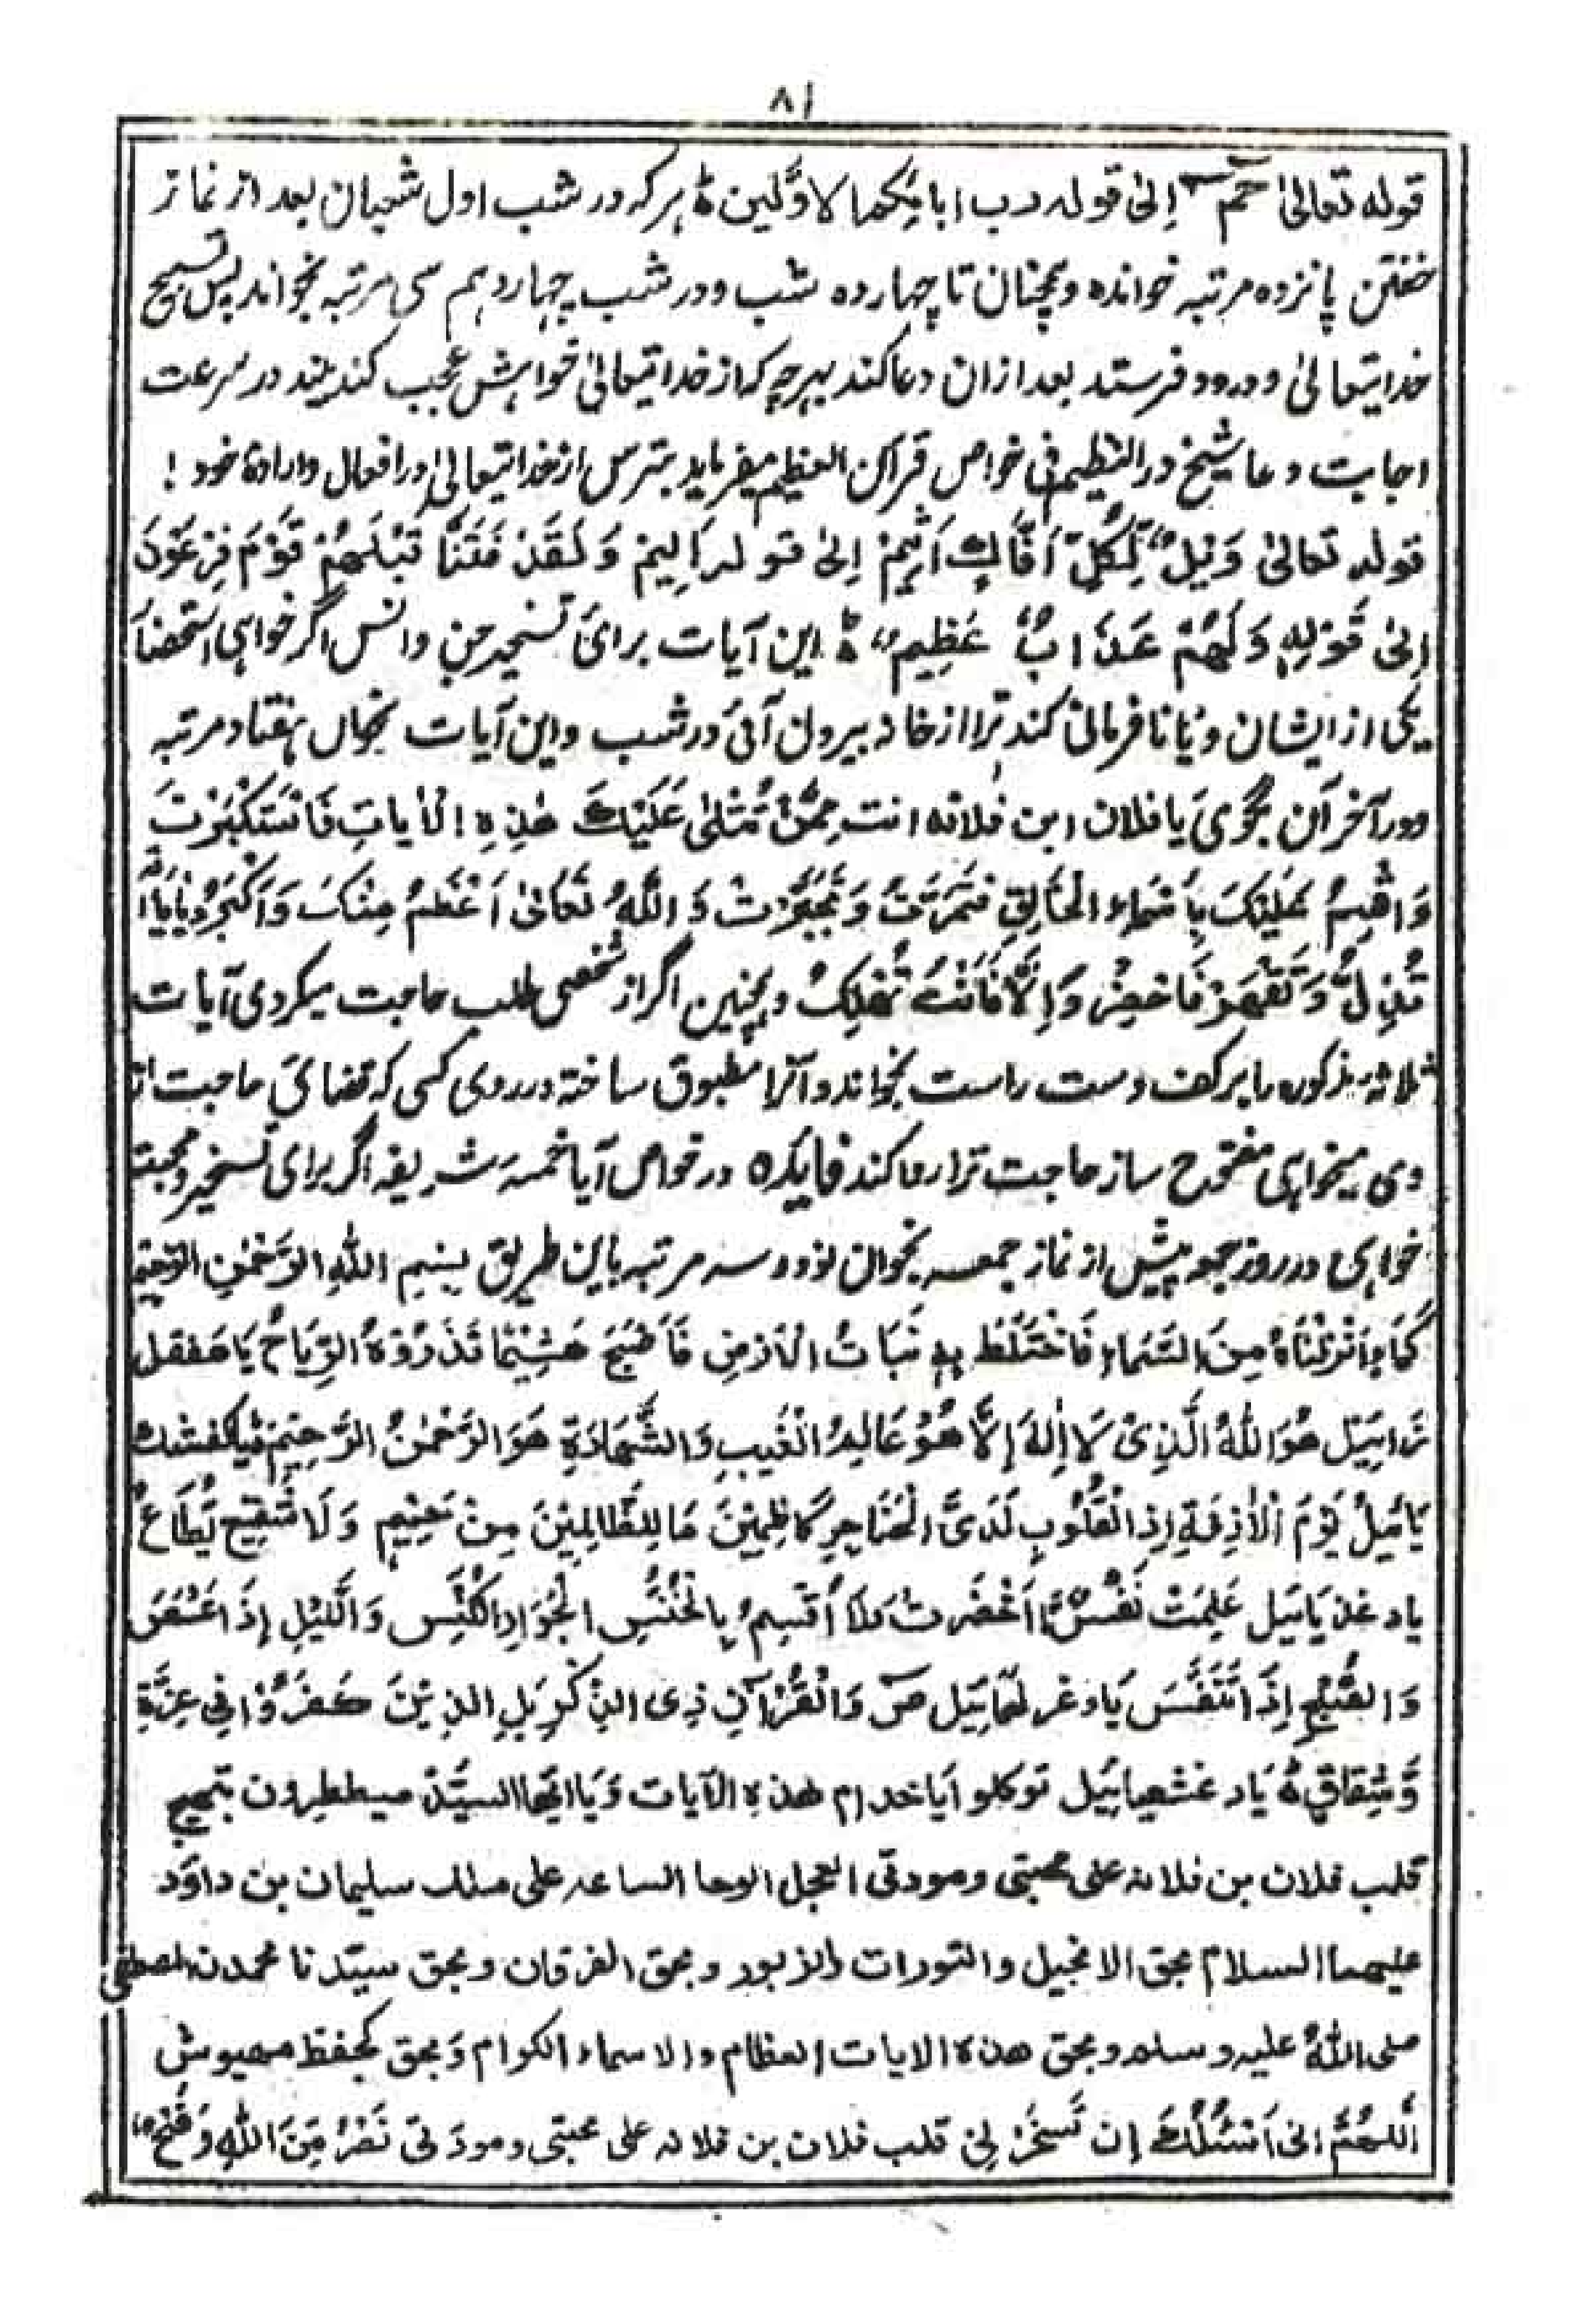 ۸۱
قوله تعالیٰ حٰمٓ اِلیٰ قوله رب اٰبائکمالاوَّلین ﮦ ہرکہ در شب اول شعبان بعد از نماز
خفتن پانزدہ مرتبہ خواندہ وہمچنان تا چہاردہ شب ودر شب چہاردہم سی مرتبہ بخواند پس تسبیح
خدایتعالیٰ و درود فرستد بعد ازان دعا کند بہرچہ کہ از خدایتعالیٰ خواہش عجب کند بیند در سرعت
اجابت دعا شیخ در النظیم فی خواص قرآن العظیم میفرماید بترس از خدایتعالیٰ در افعال وارادۂ خود !
قوله تعالیٰ وَیْلٌ لِّکُلِّ اَفَّاكٍ اَثِیْمْ اِلیٰ قوله اَلِیْمْ وَلَقَدْ فَتَنَّا قَبْلَهُمْ قَوْمَ فِرْعَوْنَ
اِلیٰ قَوْلِهٖ وَلَهُمْ عَذَابٌ عَظِیْمٌ ﮦ این آیات برائ تسخیر جن وانس اگر خواہی استحضا
یکی از ایشان ویا نافرمانی کند ترا از خانہ بیرون آئ در شب واین آیات بخوان ہفتاد مرتبہ
ودر آخر آن بگوئ یا فلان ابن فلانہ انت مِمَّنْ تُتْلیٰ عَلَیْكَ هٰذِهِ الْاٰیاتِ فَاسْتَکْبَرْتَ
وَاقْسِمُ عَلَیْكَ بِاَسْمَاءِ الْخَالِقِ فَتَمَرَّدْتَ وَتَجَبَّرْتَ وَاللّٰهُ تَعَالیٰ اَعْظَمُ مِنْكَ وَاَکْبَرُ
تُذِلُّ وَتَقْهَرْ فَاحْضِرْ وَاِلَّا فَاَنْتَ تُهْلِكُ وہمچنین اگر از شخصی طلب حاجت میکردی آیات
ثلاثہ مذکورہ را برکف دست راست بخواند وآنرا مطبوق ساختہ در روی کسی کہ قضائ حاجت از
وی میخواہی مفتوح ساز حاجت ترا روا کند فایٔدہ در خواص آیا خمسہ شریفہ اگر برای تسخیر ومحبت
خواہی در روز جمعہ پیش از نماز جمعہ بخوان نود وسہ مرتبہ باین طریق بِسْمِ اللّٰهِ الرَّحْمٰنِ الرَّحِیْمِ
کَمَاءٍ اَنْزَلْنَاهُ مِنَ السَّمَاءِ فَاخْتَلَطَ بِهٖ نَبَاتُ الْاَرْضِ فَاَصْبَحَ هَشِیْمًا تَذْرُوْهُ الرِّیَاحُ یَا
هُوَاللّٰهُ الَّذِیْ لَا اِلٰهَ اِلَّا هُوْ عَالِمُ الْغَیْبِ وَالشَّهَادَةِ هُوَ الرَّحْمٰنُ الرَّحِیْمْ
یَائِیْلُ یَوْمَ الْاٰزِفَةِ اِذِ الْقُلُوْبِ لَدَی الْحَنَاجِرِ کَاظِمِیْنَ مَا لِلظَّالِمِیْنَ مِنْ حَمِیْمٍ وَلَا شَفِیْعٍ یُّطَاعُ
عَلِمَتْ نَفْسٌ مَّا اَحْضَرَتْ فَلَا اُقْسِمُ بِالْخُنَّسِ الْجَوَارِ الْکُنَّسِ وَالَّیْلِ اِذَا عَسْعَسَ
وَالصُّبْحِ اِذَا تَنَفَّسَ صٓ وَالْقُرْاٰنِ ذِی الذِّکْرِ بَلِ الذِیْنَ کَفَرُوْا فِیْ عِزَّةٍ
وَّشِقَاقٍ ﮦ توکلوا یَاخدام هٰذه الآیات وَیَا ایُّها السیّدْ میططرون بتهیج
قلب فلان بن فلانہ علی محبتی ومودتی العجل الوحا الساعہ علی ملك سلیمان بن داوٗد
علیهما السلام بحق الانجیل والتورات والزبور وبحق الفرقان وبحق سیّدنا محمدن المصطفی
صلی اللّٰهُ علیہ وسلم وبحق هذه الایات العظام والاسماء الکرام وَبحق کجفظ مهیوش
اَللّٰهُمَّ انی اَسْئَلُكَ اِن تَسَخَّرْ لِیْ قلب فلان بن فلانہ علی محبتی ومودَتی نَصْرٌ مِّنَ اللّٰهِ وَفَتْحٌ